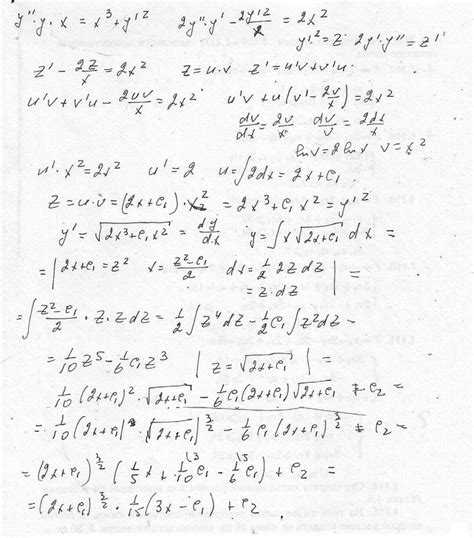 y''·y·x = x³ + y'² 2y''·y' - 2y'²/x = 2x²
y'² = z 2y'·y'' = z'
z' - 2z/x = 2x² z = u·v z' = u'v + v'u
u'v + v'u - 2uv/x = 2x² u'v + u(v' - 2v/x) = 2x²
dv/dx = 2v/x dv/v = 2dx/x
ln v = 2 ln x v = x²
u'·x² = 2x² u' = 2 u = ∫2dx = 2x + c₁
z = u·v = (2x + c₁)·x² = 2x³ + c₁x² = y'²
y' = √(2x³ + c₁x²) = dy/dx y = ∫x√(2x + c₁) dx =
= | 2x + c₁ = z² x = (z² - c₁)/2 dx = 1/2 2z dz = z·dz | =
= ∫ (z² - c₁)/2 · z · z dz = 1/2 ∫z⁴dz - 1/2 c₁∫z²dz -
= 1/10 z⁵ - 1/6 c₁z³ | z = √(2x + c₁) | =
1/10 (2x + c₁)²·√(2x + c₁) - 1/6 c₁(2x + c₁)√(2x + c₁) + c₂ =
= 1/10 (2x + c₁)·√(2x + c₁)^(3/2) - 1/6 c₁(2x + c₁)^(3/2) + c₂ =
= (2x + c₁)^(3/2) (1/5 x + 1/10 c₁ - 1/6 c₁) + c₂ =
= (2x + c₁)^(3/2) · 1/15 (3x - c₁) + c₂